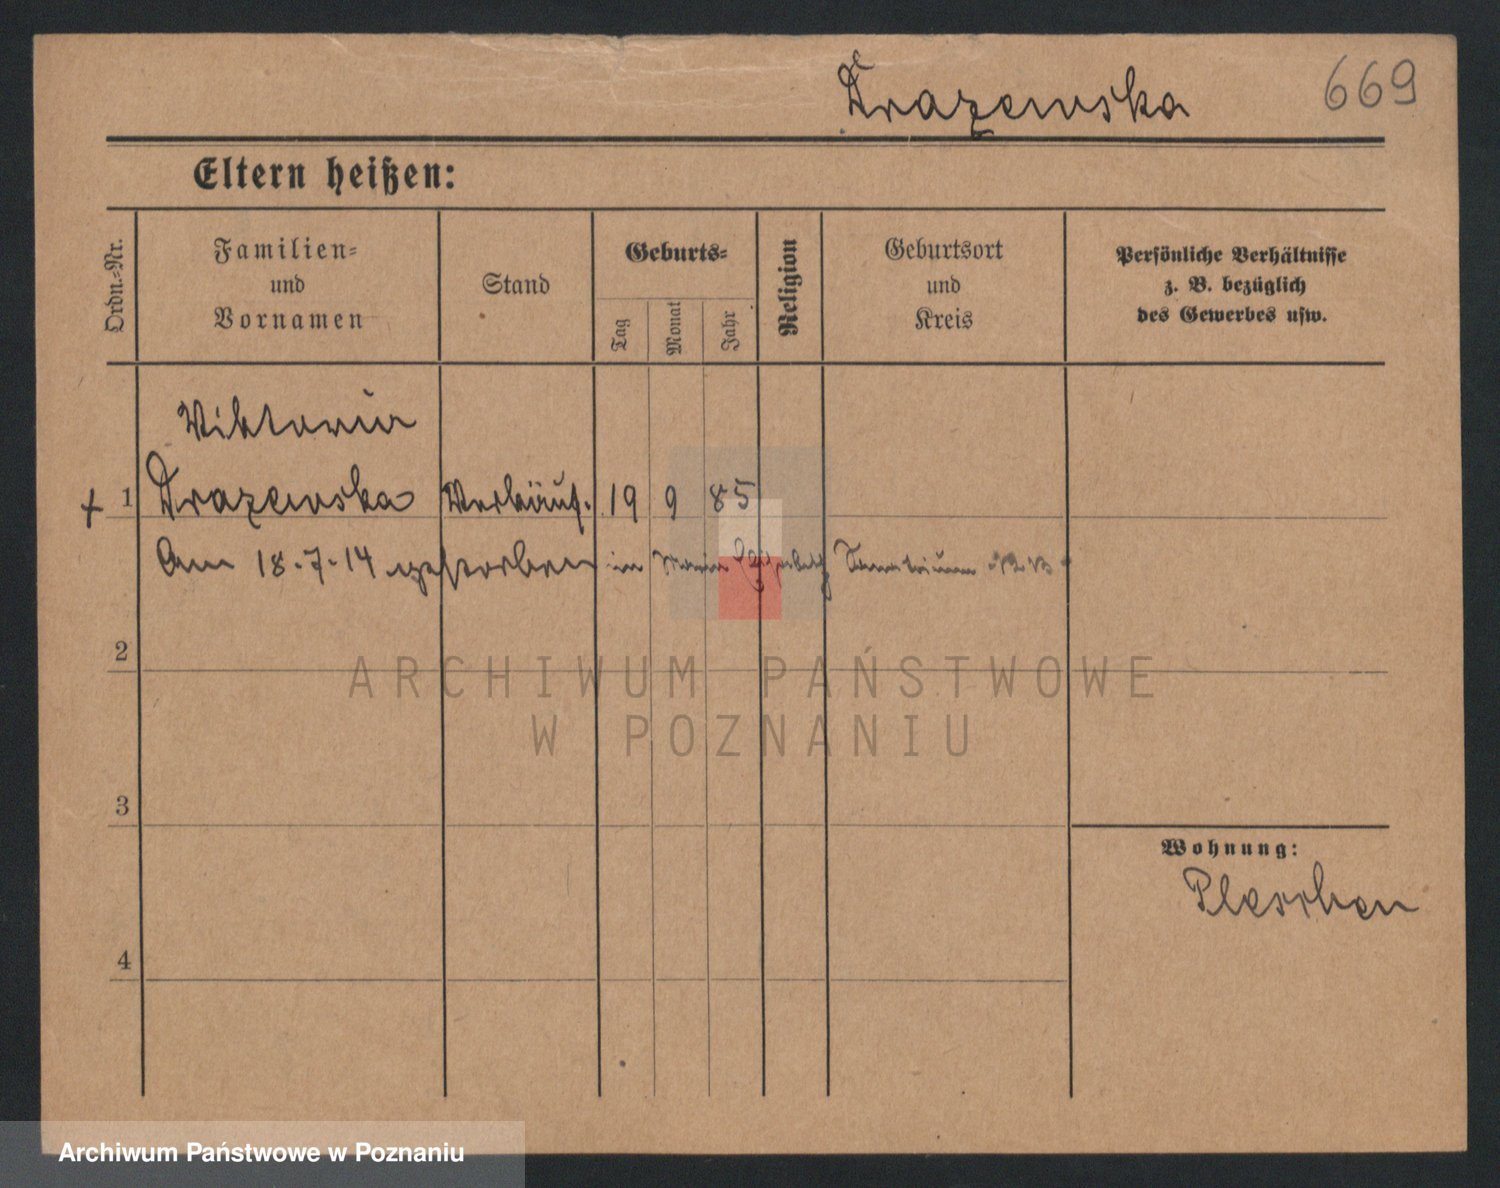 Drazewska 669
Eltern heißen:
Ordn.-Nr.
Familien-
und
Vornamen
Stand
Geburts-
Tag
Monat
Jahr
Religion
Geburtsort
und
Kreis
Persönliche Verhältnisse
z. B. bezüglich
des Gewerbes usw.
Viktoria
+ 1 Drazewska Verkäuf. 19 9 85
Am 18.7.14 gestorben im Maria Sanatorium
2
ARCHIWUM PAŃSTWOWE
W POZNANIU
3
Wohnung:
Pleschen
4
Archiwum Państwowe w Poznaniu